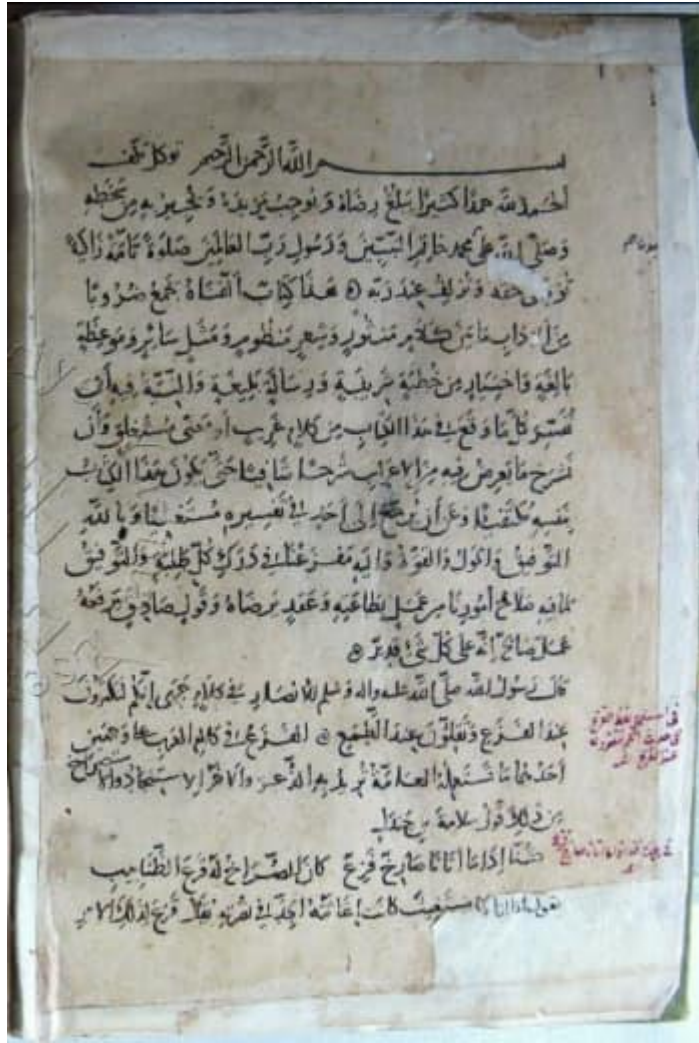 بسم الله الرحمن الرحيم توكل تكف
الحمد لله حمدا كثيرا يبلغ رضاه ويوجب مزيده ويجير به من سخطه
وصلى الله على محمد خاتم النبيين ورسول رب العالمين صلوة تامة زاكية
تؤدى حقه وتزلف عند ربه هذا كتاب الفناه يجمع ضروبا
من الاداب ما بين كلام منثور وشعر منظوم ومثل سائر وموعظة
بالغة واختيار من خطبة شريفة ورسالة بليغة والنية فيه أن
نفسر كل ما وقع في هذا الكتاب من كلام غريب أو معنى مستغلق وأن
نشرح ما يعرض فيه من الاعراب شرحا شافيا حتى يكون هذا الكتاب
بنفسه مكتفيا وعن أن يرجع إلى أحد في تفسيره مستغنيا وبالله
التوفيق والحول والقوة واليه مفزعنا في درك كل طلبة والتوفيق
لما فيه صلاح أمورنا من عمل بطاعته وعقد برضاه وقول صادق يرفعه
عمل صالح إنه على كل شئ قدير
قال رسول الله صلى الله عليه واله وسلم للانصار في كلام جرى إنكم لتكثرون
عند الفزع وتقلون عند الطمع الفزع في كلام العرب على وجهين
أحدهما ما تستعمله العامة تريد به الذعر والاخر الاستنجاد والاستصراخ
من ذلك قول سلامة بن جندل
كنا إذا ما أتانا صارخ فزع كان الصراخ له قرع الظنابيب
يقول إذا أتانا مستغيث كانت إغاثته الجد في نصرته يقال قرع لذلك الأمر